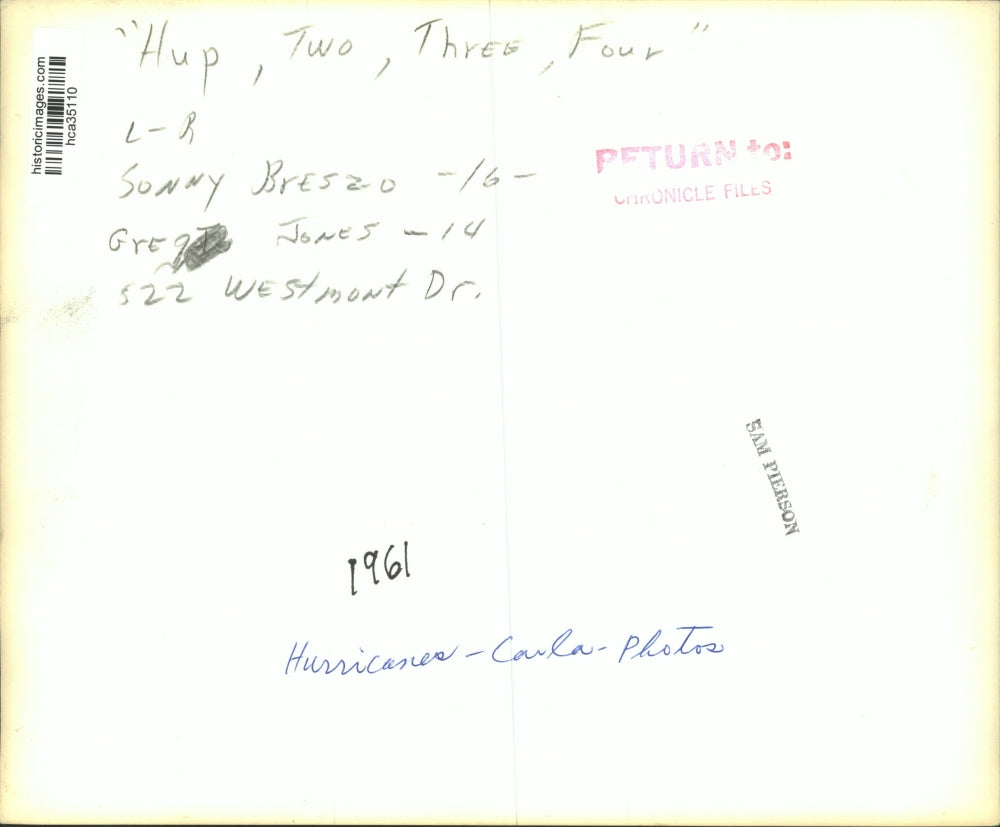 historicimages.com
hca35110
"Hup, Two, Three, Four"
L-R
Sonny Breszo -16-
Greg Jones - 14
522 Westmont Dr.
RETURN to:
CHRONICLE FILES
SAM PIERSON
1961
Hurricanes - Carla - Photos